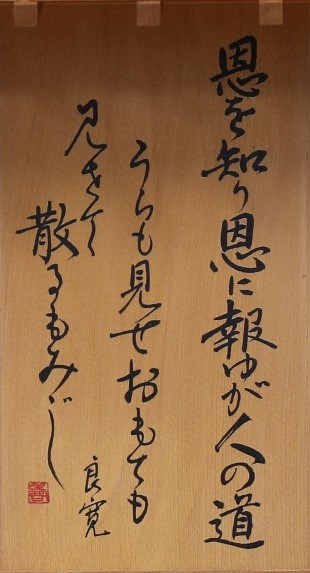 恩を知り恩に報ゆが人の道
うらも見せおもても
見せて
散るもみじ
良寛